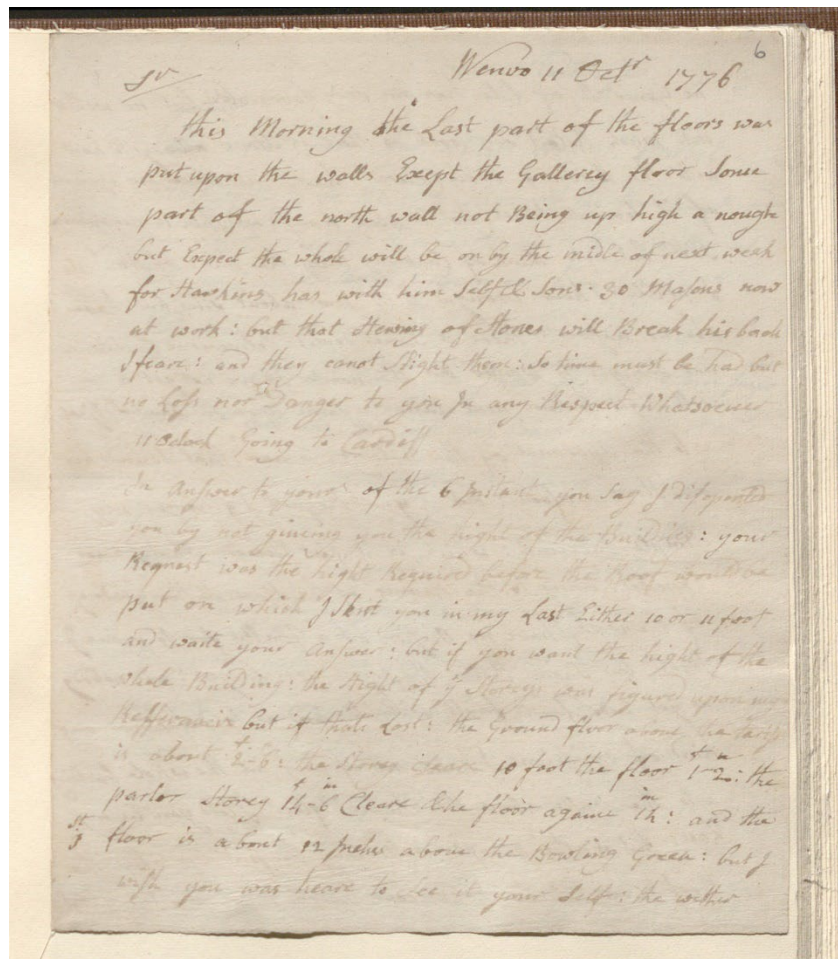 6
Sr Wenvo 11 Octr 1776
this Morning the Last part of the floors was
put upon the walls Except the Gallerey floor Some
part of the north wall not Being up high a nough
but Expect the whole will be on by the midle of next week
for Hawkins has with him Self & Sons 30 Masons now
at work: but that Hewing of Stones will Break his back
I feare: and they canot Slight them: So time must be had but
no Loss nor Danger to you In any Respect Whatsoever
11 oClock Going to Cardiff
In Answer to yours of the 6 Instant you Say I disopented
you by not giveing you the hight of the Building: your
Request was the hight Required before the Roof would be
put on which I Sent you in my Last Either 10 or 11 foot
and waite your Answer: but if you want the hight of the
whole Building: the Hight of ye Storeys was figured upon my
but if thats Lost: the Ground floor above the
is about 2-6: the Storey Cleare 10 foot the floor 1ft-2in: the
parlor Storey 14ft-6in Cleare & the floor againe 14in: and the
floor is about 12 Inches above the Bowling Green: but I
wish you was heare to See it your Self: the wether